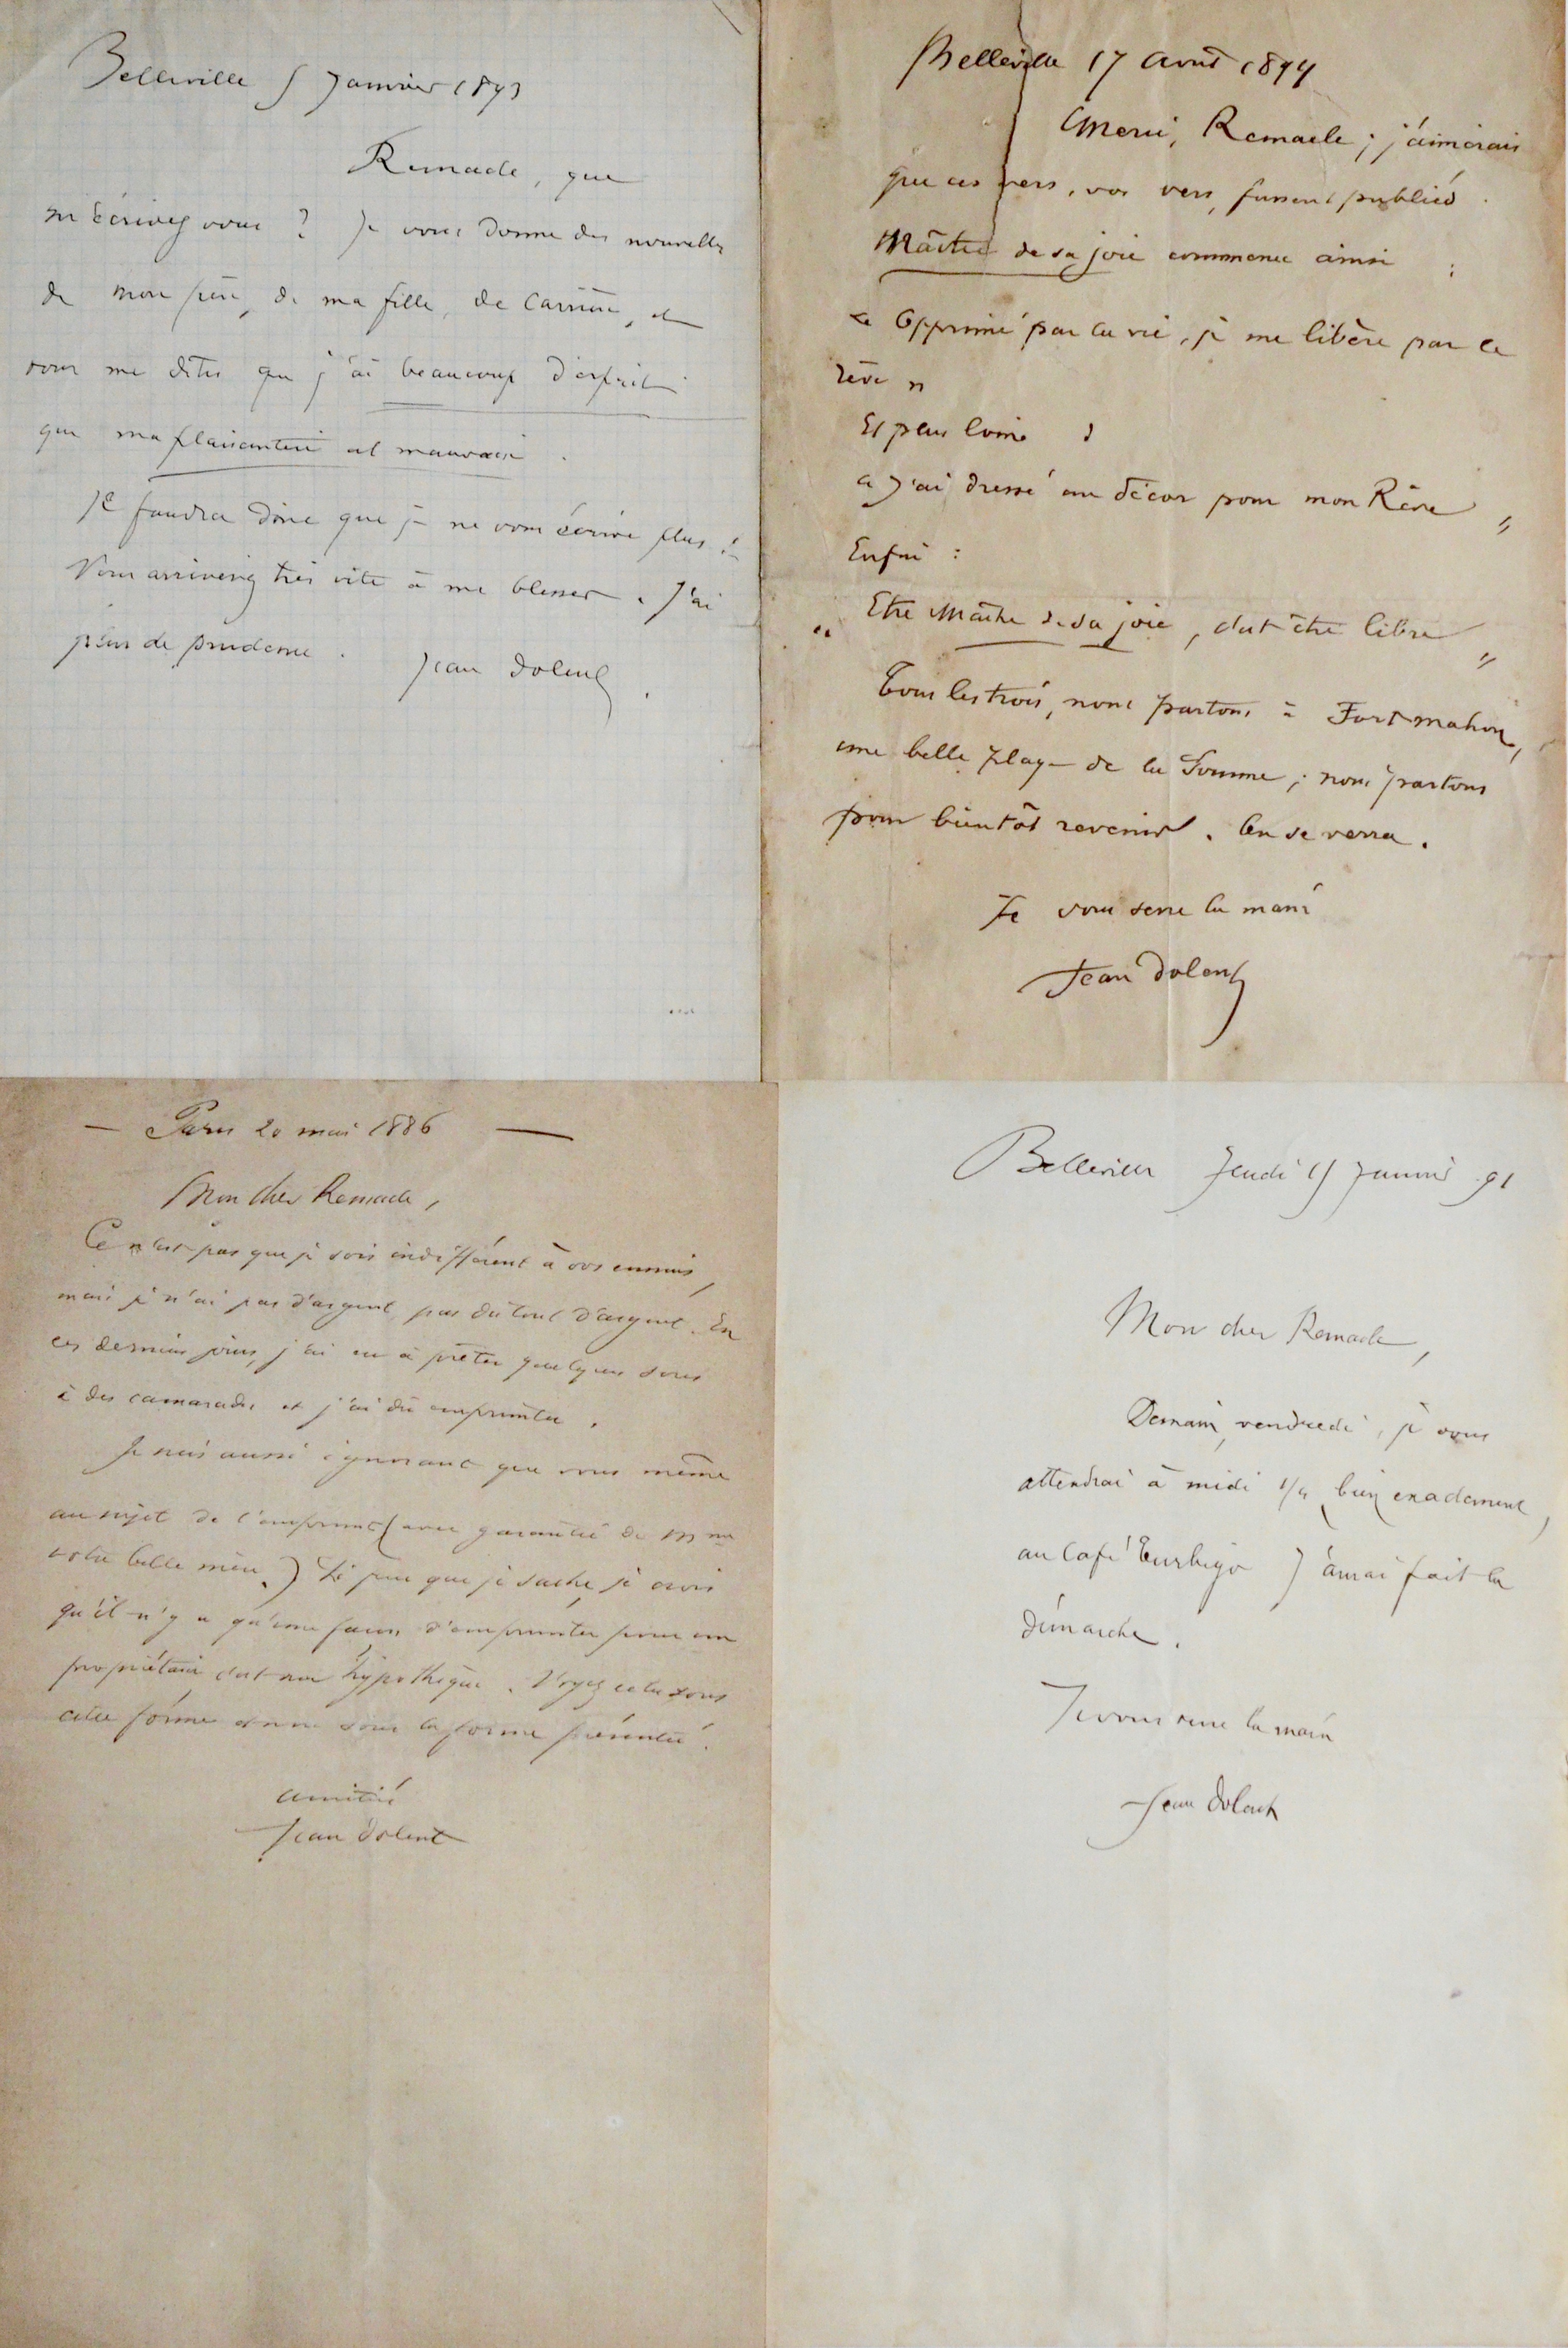 Belleville 5 Janvier 1893
Remacle, que
m'écrivez vous ? Je vous donne des nouvelles
de mon père, de ma fille, de Carrière, et
vous me dites que j'ai beaucoup d'esprit
que ma plaisanterie est mauvaise.
Il faudra donc que je ne vous écrive plus !
Vous arriverez très vite à me blesser. J'ai
peur de prudence.
Jean Dolent.
Belleville 17 Avril 1894
Merci, Remacle ; j'aimerais
que ces vers, vos vers, fussent publiés.
Maître de sa joie commence ainsi :
« Opprimé par la vie, je me libère par le
rêve »
Et plus loin :
« J'ai dressé un décor pour mon Rêve »
Enfin :
« Etre Maître de sa joie, c'est être libre »
Tous les trois, nous partons à Fort-Mahon,
une belle plage de la Somme ; nous partons
pour bientôt revenir. On se verra.
Je vous serre la main
Jean Dolent
— Paris 20 mai 1886 —
Mon cher Remacle,
Ce n'est pas que je sois indifférent à vos ennuis,
mais je n'ai pas d'argent, pas du tout d'argent. En
ces derniers jours, j'ai eu à prêter quelques sous
à des camarades et j'ai dû emprunter.
Je suis aussi ignorant que vous même
au sujet de l'emprunt (avec garantie de Mme
votre belle mère.) Si peu que je sache, je crois
qu'il n'y a qu'une façon d'emprunter pour un
propriétaire, c'est sur hypothèque. Voyez cela sous
cette forme et non sous la forme présentée.
Amitié
Jean Dolent
Belleville Jeudi 15 Janvier 91
Mon cher Remacle,
Demain, vendredi, je vous
attendrai à midi 1/4, bien exactement,
au Café Turbigo J'aurai fait la
démarche.
Je vous serre la main
Jean Dolent